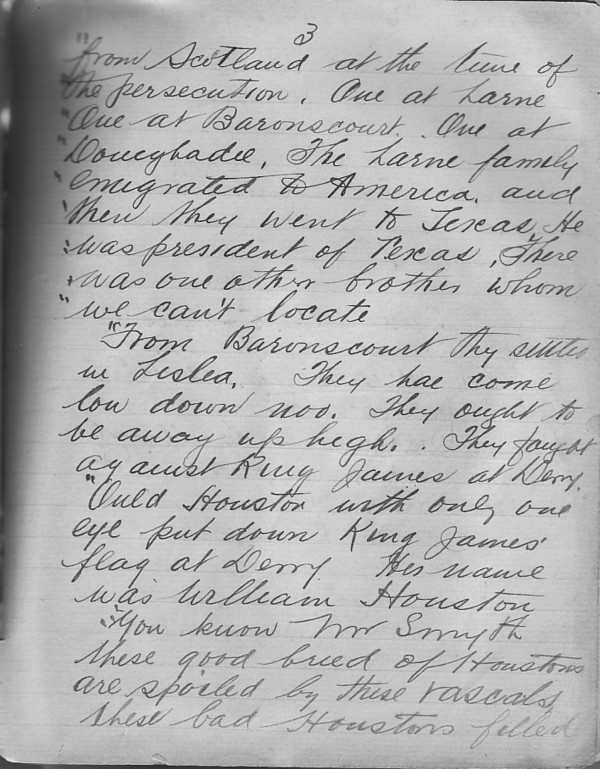 3
"from Scotland at the time of
"the persecution. One at Larne
"One at Baronscourt. One at
"Doneghadee. The Larne family
"emigrated to America. and
"then they went to Texas. He
"was president of Texas, There
"was one other brother whom
"we can't locate
"From Baronscourt thy settled
in Leslea. They hae come
low down noo. They ought to
be away up high. They fought
against King James at Derry.
"Ould Houston with only one
eye put down King James'
flag at Derry. His name
was William Houston
"You know Mr Smyth
these good breed of Houstons
are spoiled by these rascals,
these bad Houstons filled